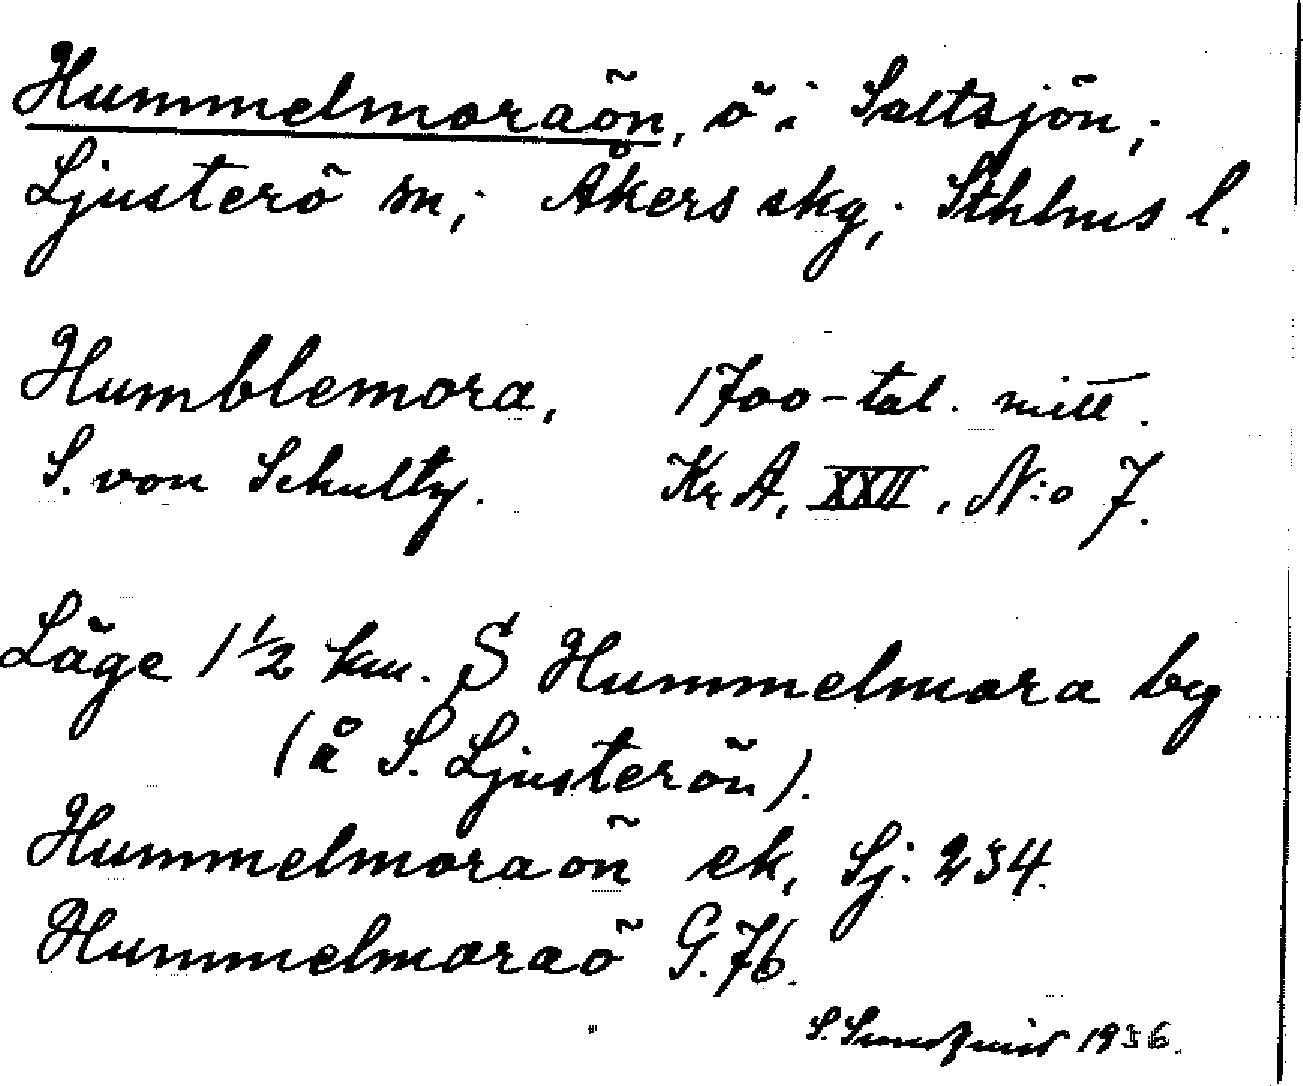 Hummelmoraön, ö i Saltsjön,
Ljusterö sn, Åkers skg, Sthlms l.
Humblemora, 1700-tal. mitt.
S. von Schultz. Kr A, XXII, N:o 7.
Läge 1 1/2 km. S Hummelmora by
(å S. Ljusterön).
Hummelmoraön ek, Sj: 234.
Hummelmoraö G. 76.
S. Sundqvist 1936.